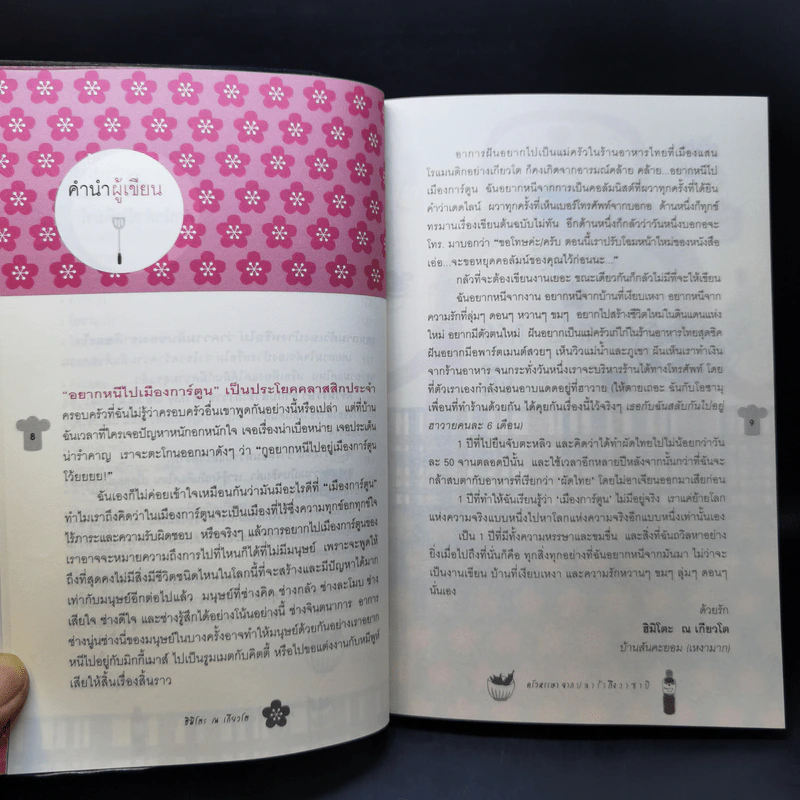 คำนำผู้เขียน
"อยากหนีไปเมืองการ์ตูน" เป็นประโยคคลาสสิกประจำ
ครอบครัวที่ฉันไม่รู้ว่าครอบครัวอื่นเขาพูดกันอย่างนี้หรือเปล่า แต่ที่บ้าน
ฉันเวลาที่ใครเจอปัญหาหนักอกหนักใจ เจอเรื่องน่าเบื่อหน่าย เจอประเด็น
น่ารำคาญ เราจะตะโกนออกมาดังๆ ว่า "กูอยากหนีไปอยู่เมืองการ์ตูน
โว้ยยยย!"
ฉันเองก็ไม่ค่อยเข้าใจเหมือนกันว่ามันมีอะไรดีที่ "เมืองการ์ตูน"
ทำไมเราถึงคิดว่าในเมืองการ์ตูนจะเป็นเมืองที่ไร้ซึ่งความทุกข์อกทุกข์ใจ
ไร้ภาระและความรับผิดชอบ หรือจริงๆ แล้วการอยากไปเมืองการ์ตูนของ
เราอาจจะหมายความถึงการไปที่ไหนก็ได้ที่ไม่มีมนุษย์ เพราะจะพูดให้
ถึงที่สุดคงไม่มีสิ่งมีชีวิตชนิดไหนในโลกนี้ที่จะสร้างและมีปัญหาได้มาก
เท่ากับมนุษย์อีกต่อไปแล้ว มนุษย์ที่ช่างคิด ช่างกลัว ช่างละโมบ ช่าง
เสียใจ ช่างดีใจ และช่างรู้สึกได้อย่างโน้นอย่างนี้ ช่างจินตนาการ อาการ
ช่างนู่นช่างนี่ของมนุษย์ในบางครั้งอาจทำให้มนุษย์ด้วยกันอย่างเราอยาก
หนีไปอยู่กับมิกกี้เมาส์ ไปเป็นรูมเมตกับคิตตี้ หรือไปขอแต่งงานกับหมีพูห์
เสียให้สิ้นเรื่องสิ้นราว
8
ฮิมิโตะ ณ เกียวโต
อาการฝันอยากไปเป็นแม่ครัวในร้านอาหารไทยที่เมืองแสน
โรแมนติกอย่างเกียวโต ก็คงเกิดจากอารมณ์คล้าย คล้าย...อยากหนีไป
เมืองการ์ตูน ฉันอยากหนีจากการเป็นคอลัมนิสต์ที่ผวาทุกครั้งที่ได้ยิน
คำว่าเดดไลน์ ผวาทุกครั้งที่เห็นเบอร์โทรศัพท์จากบอกอ ด้านหนึ่งก็ทุกข์
ทรมานเรื่องเขียนต้นฉบับไม่ทัน อีกด้านหนึ่งก็กลัวว่าวันหนึ่งบอกอจะ
โทร. มาบอกว่า "ขอโทษค่ะ/ครับ ตอนนี้เราปรับโฉมหน้าใหม่ของหนังสือ
เอ่อ...จะขอหยุดคอลัมน์ของคุณไว้ก่อนนะ..."
กลัวที่จะต้องเขียนงานเยอะ ขณะเดียวกันก็กลัวไม่มีที่จะให้เขียน
ฉันอยากหนีจากงาน อยากหนีจากบ้านที่เงียบเหงา อยากหนีจาก
ความรักที่ลุ่มๆ ดอนๆ หวานๆ ขมๆ อยากไปสร้างชีวิตใหม่ในดินแดนแห่ง
ใหม่ อยากมีตัวตนใหม่ ฝันอยากเป็นแม่ครัวเก๋ไก๋ในร้านอาหารไทยสุดชิค
ฝันอยากมีอพาร์ตเมนต์สวยๆ เห็นวิวแม่น้ำและภูเขา ฝันเห็นเราทำเงิน
จากร้านอาหาร จนกระทั่งวันหนึ่งเราจะบริหารร้านได้ทางโทรศัพท์ โดย
ที่ตัวเราเองกำลังนอนอาบแดดอยู่ที่ฮาวาย (ให้ตายเถอะ ฉันกับโอซามุ
เพื่อนที่ทำร้านด้วยกัน ได้คุยกันเรื่องนี้ไว้จริงๆ เธอกับฉันสลับกันไปอยู่
ฮาวายคนละ 6 เดือน)
1 ปีที่ไปยืนจับตะหลิว และคิดว่าได้ทำผัดไทยไปไม่น้อยกว่าวัน
ละ 50 จานตลอดปีนั้น และใช้เวลาอีกหลายปีหลังจากนั้นกว่าที่ฉันจะ
กล้าสบตากับอาหารที่เรียกว่า 'ผัดไทย' โดยไม่อยากอาเจียนออกมาเสียก่อน
1 ปีที่ทำให้ฉันเรียนรู้ว่า 'เมืองการ์ตูน' ไม่มีอยู่จริง เราแค่ย้ายโลก
แห่งความจริงแบบหนึ่งไปหาโลกแห่งความจริงอีกแบบหนึ่งเท่านั้นเอง
เป็น 1 ปีที่มีทั้งความหรรษาและขมขื่น และสิ่งที่ฉันถวิลหาอย่าง
ยิ่งเมื่อไปถึงที่นั่นก็คือ ทุกสิ่งทุกอย่างที่ฉันอยากหนีจากมันมา ไม่ว่าจะ
เป็นงานเขียน บ้านที่เงียบเหงา และความรักหวานๆ ขมๆ ลุ่มๆ ดอนๆ
นั่นเอง
ด้วยรัก
ฮิมิโตะ ณ เกียวโต
บ้านสันคะยอม (เหงามาก)
9
ครัวหรรษา จากปลาร้าถึงวาซาบิ